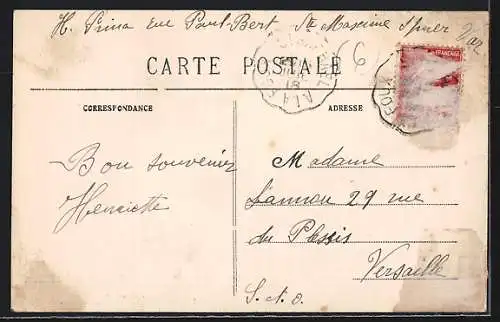 H. Prina Rue Paul-Bert Ste Maxime s/mer Var
FRANÇAISE
CARTE POSTALE
CORRESPONDANCE
ADRESSE
Bon souvenir
Henriette
Madame
Lannou 29 rue
du Plessis
Versaille
S. et O.